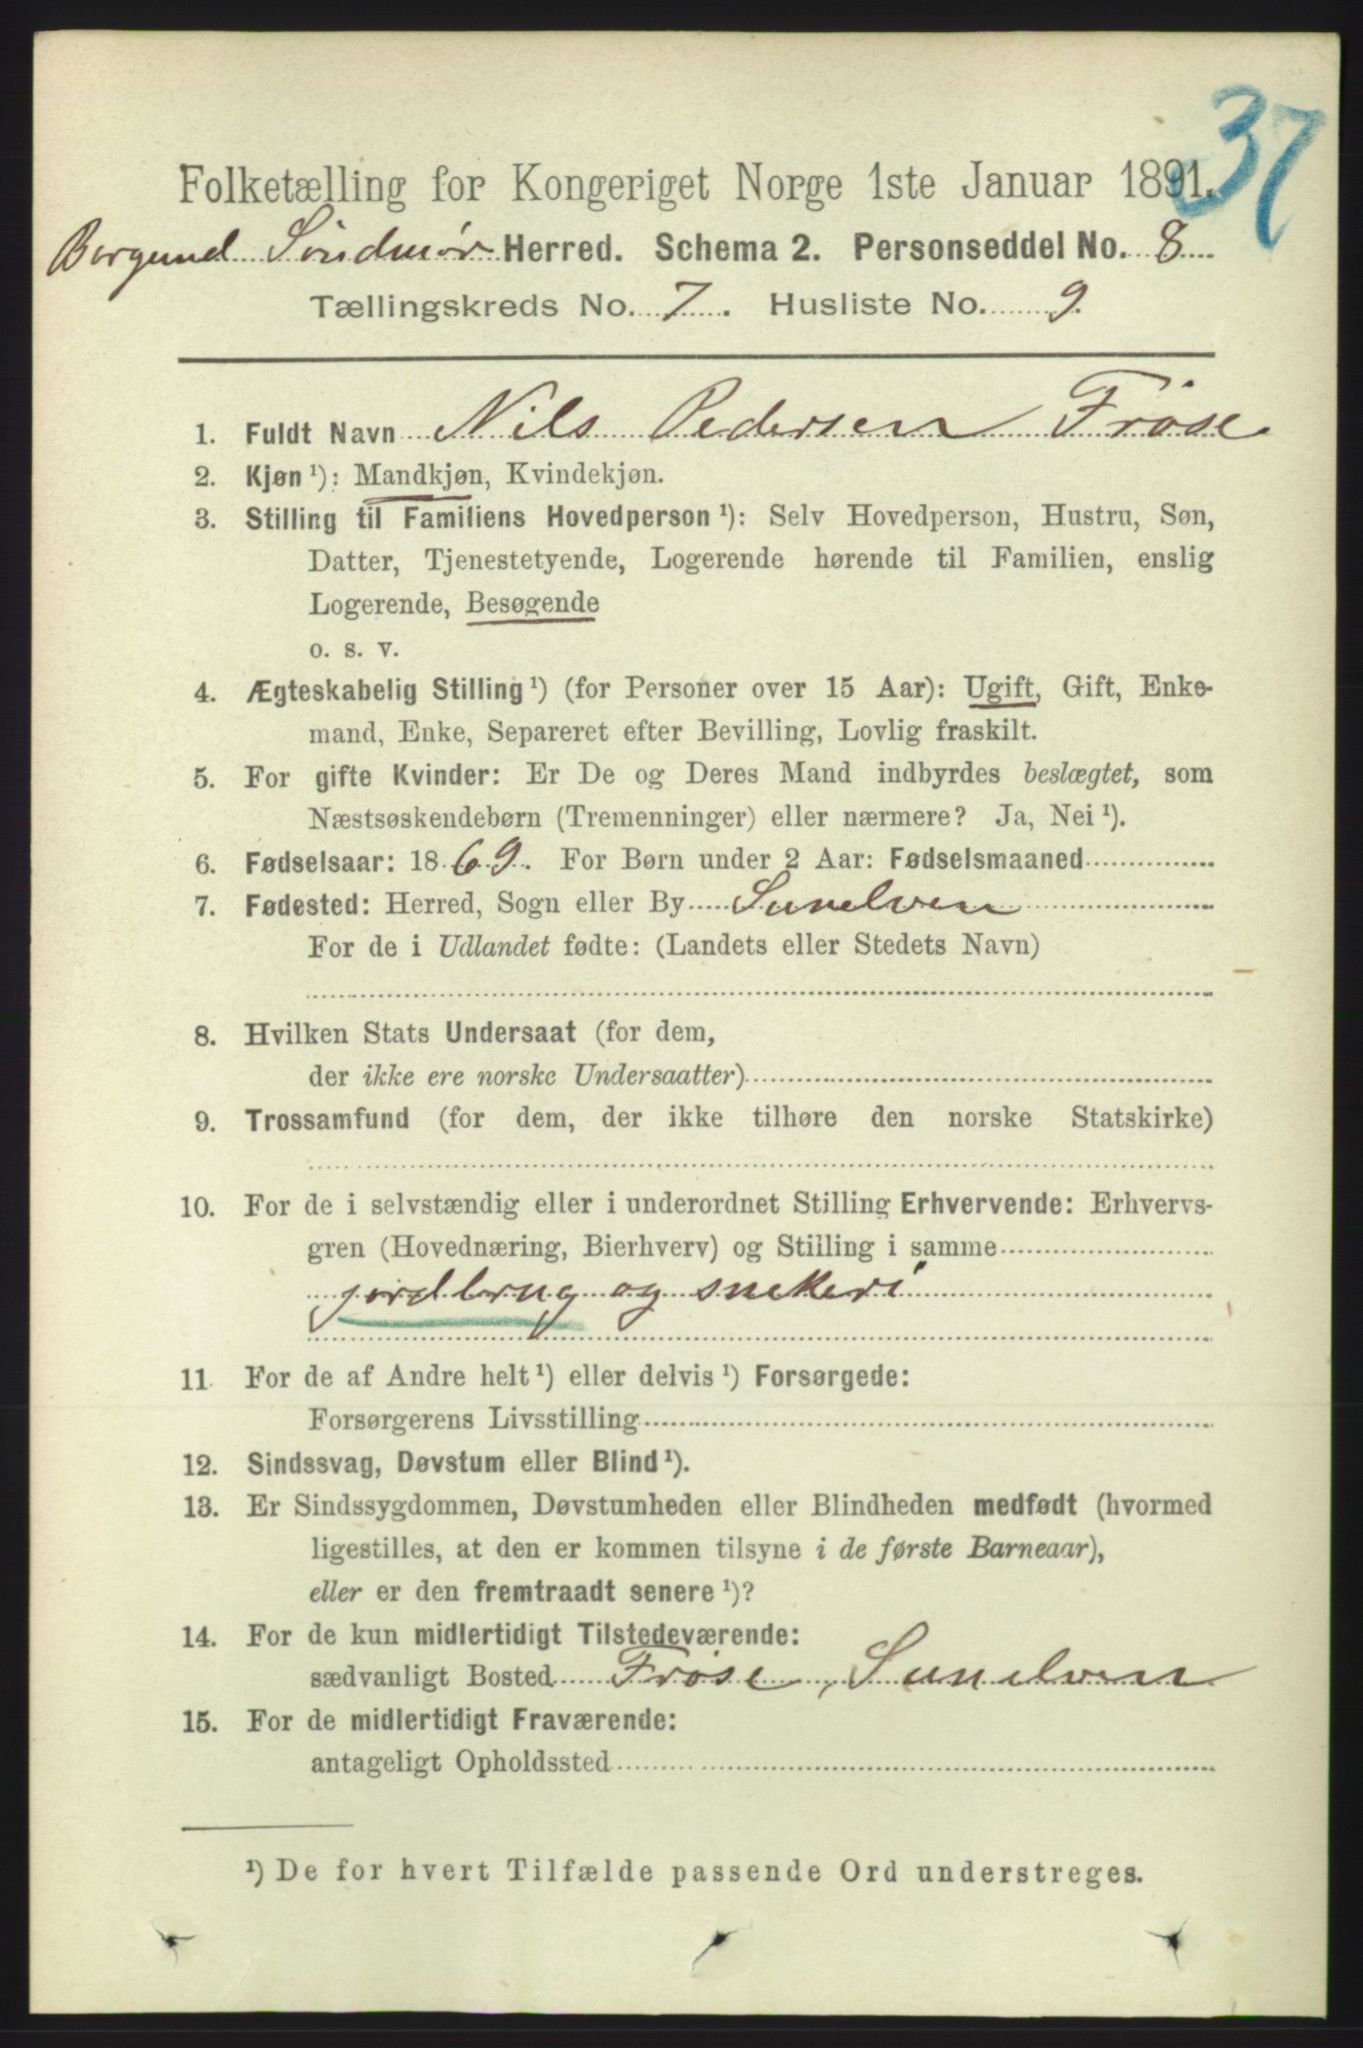 37
Folketælling for Kongeriget Norge 1ste Januar 1891.
Borgund Söndmør Herred. Schema 2. Personseddel No. 8
Tællingskreds No. 7. Husliste No. 9
1. Fuldt Navn Nils Pedersen Fröse
2. Kjøn¹): Mandkjøn, Kvindekjøn.
3. Stilling til Familiens Hovedperson¹): Selv Hovedperson, Hustru, Søn,
Datter, Tjenestetyende, Logerende hørende til Familien, enslig
Logerende, Besøgende
o. s. v.
4. Ægteskabelig Stilling¹) (for Personer over 15 Aar): Ugift, Gift, Enke-
mand, Enke, Separeret efter Bevilling, Lovlig fraskilt.
5. For gifte Kvinder: Er De og Deres Mand indbyrdes beslægtet, som
Næstsøskendebørn (Tremenninger) eller nærmere? Ja, Nei¹).
6. Fødselsaar: 1869. For Børn under 2 Aar: Fødselsmaaned
7. Fødested: Herred, Sogn eller By Sunelven
For de i Udlandet fødte: (Landets eller Stedets Navn)
8. Hvilken Stats Undersaat (for dem,
der ikke ere norske Undersaatter)
9. Trossamfund (for dem, der ikke tilhøre den norske Statskirke)
10. For de i selvstændig eller i underordnet Stilling Erhvervende: Erhvervs-
gren (Hovednæring, Bierhverv) og Stilling i samme
jordbrug og snekeri
11. For de af Andre helt¹) eller delvis¹) Forsørgede:
Forsørgerens Livsstilling
12. Sindssvag, Døvstum eller Blind¹).
13. Er Sindssygdommen, Døvstumheden eller Blindheden medfødt (hvormed
ligestilles, at den er kommen tilsyne i de første Barneaar),
eller er den fremtraadt senere¹)?
14. For de kun midlertidigt Tilstedeværende:
sædvanligt Bosted Fröse, Sunelven
15. For de midlertidigt Fraværende:
antageligt Opholdssted
¹) De for hvert Tilfælde passende Ord understreges.